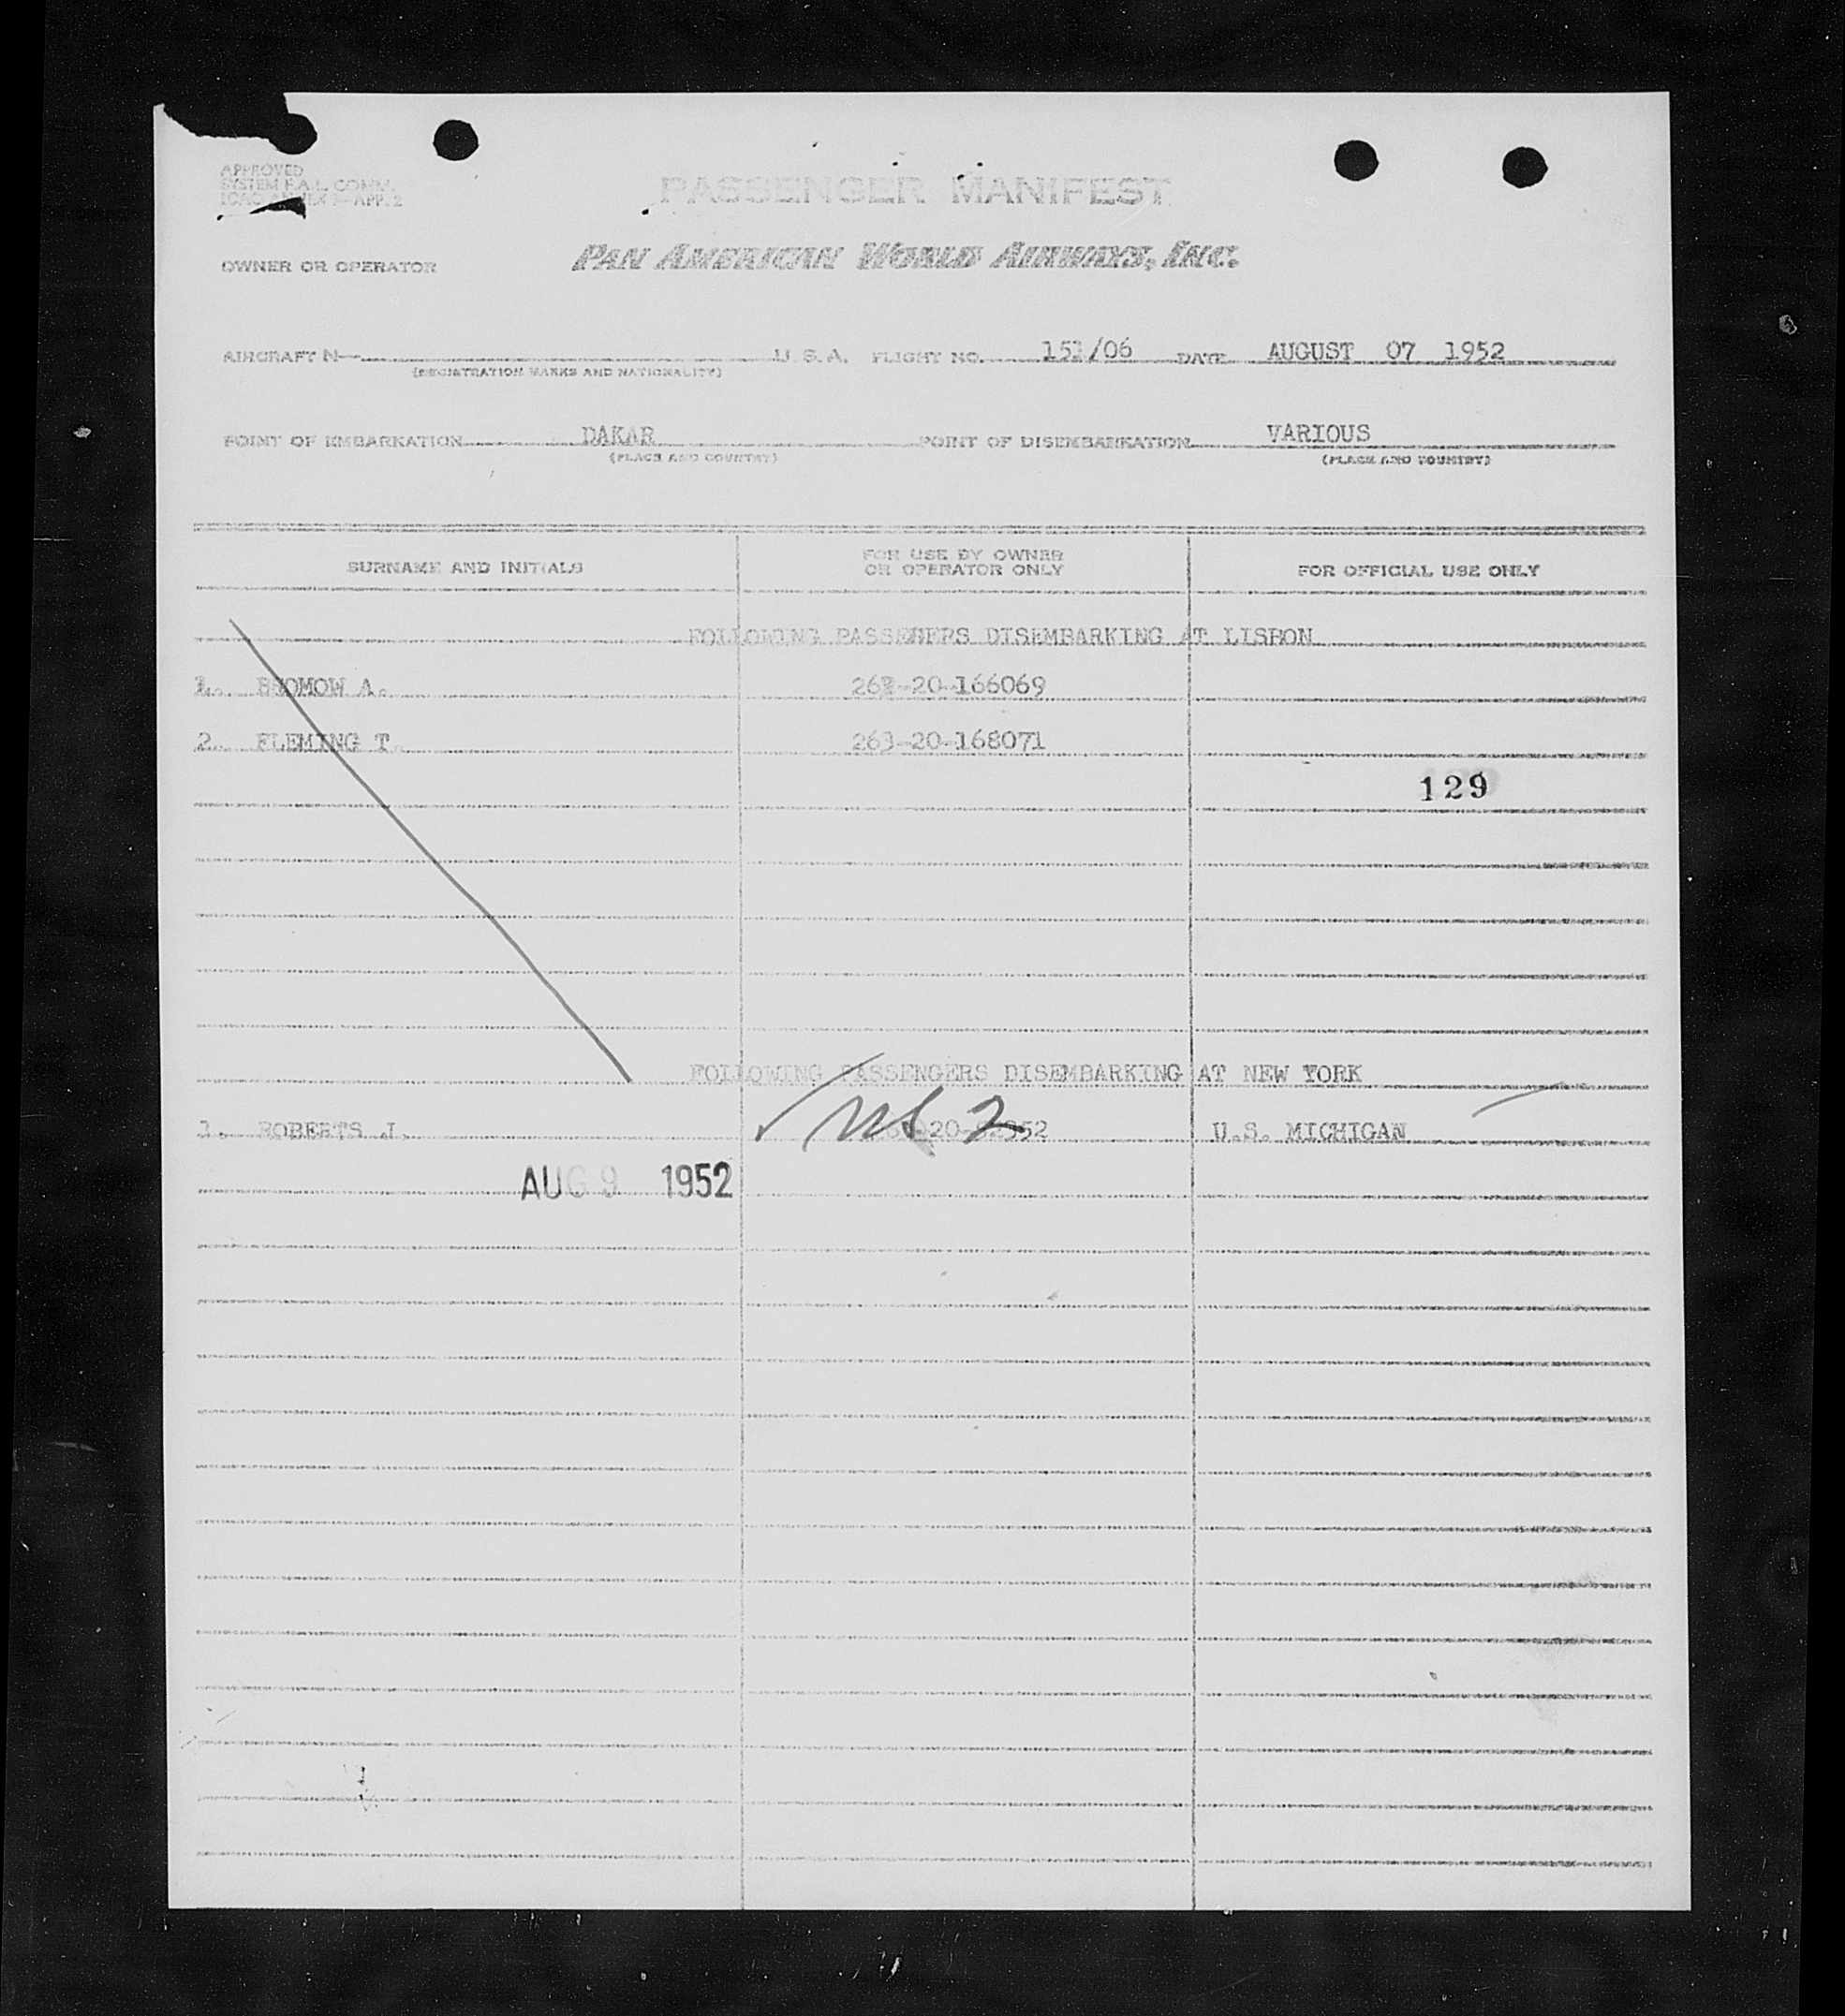 APPROVED
SYSTEM F.A.L. COMM.
ANNEX 9—APP. 2
PASSENGER MANIFEST
OWNER OR OPERATOR PAN AMERICAN WORLD AIRWAYS, INC.
AIRCRAFT N— U. S. A. FLIGHT NO. 151/06 DATE AUGUST 07 1952
(REGISTRATION MARKS AND NATIONALITY)
POINT OF EMBARKATION DAKAR POINT OF DISEMBARKATION VARIOUS
(PLACE AND COUNTRY) (PLACE AND COUNTRY)
SURNAME AND INITIALS FOR USE BY OWNER OR OPERATOR ONLY FOR OFFICIAL USE ONLY
FOLLOWING PASSENERS DISEMBARKING AT LISBON
1. A. 166069
2. FLEMING T 263-20-168071
129
FOLLOWING PASSENGERS DISEMBARKING AT NEW YORK
1. ROBERTS J. U.S. MICHIGAN
AUG 9 1952